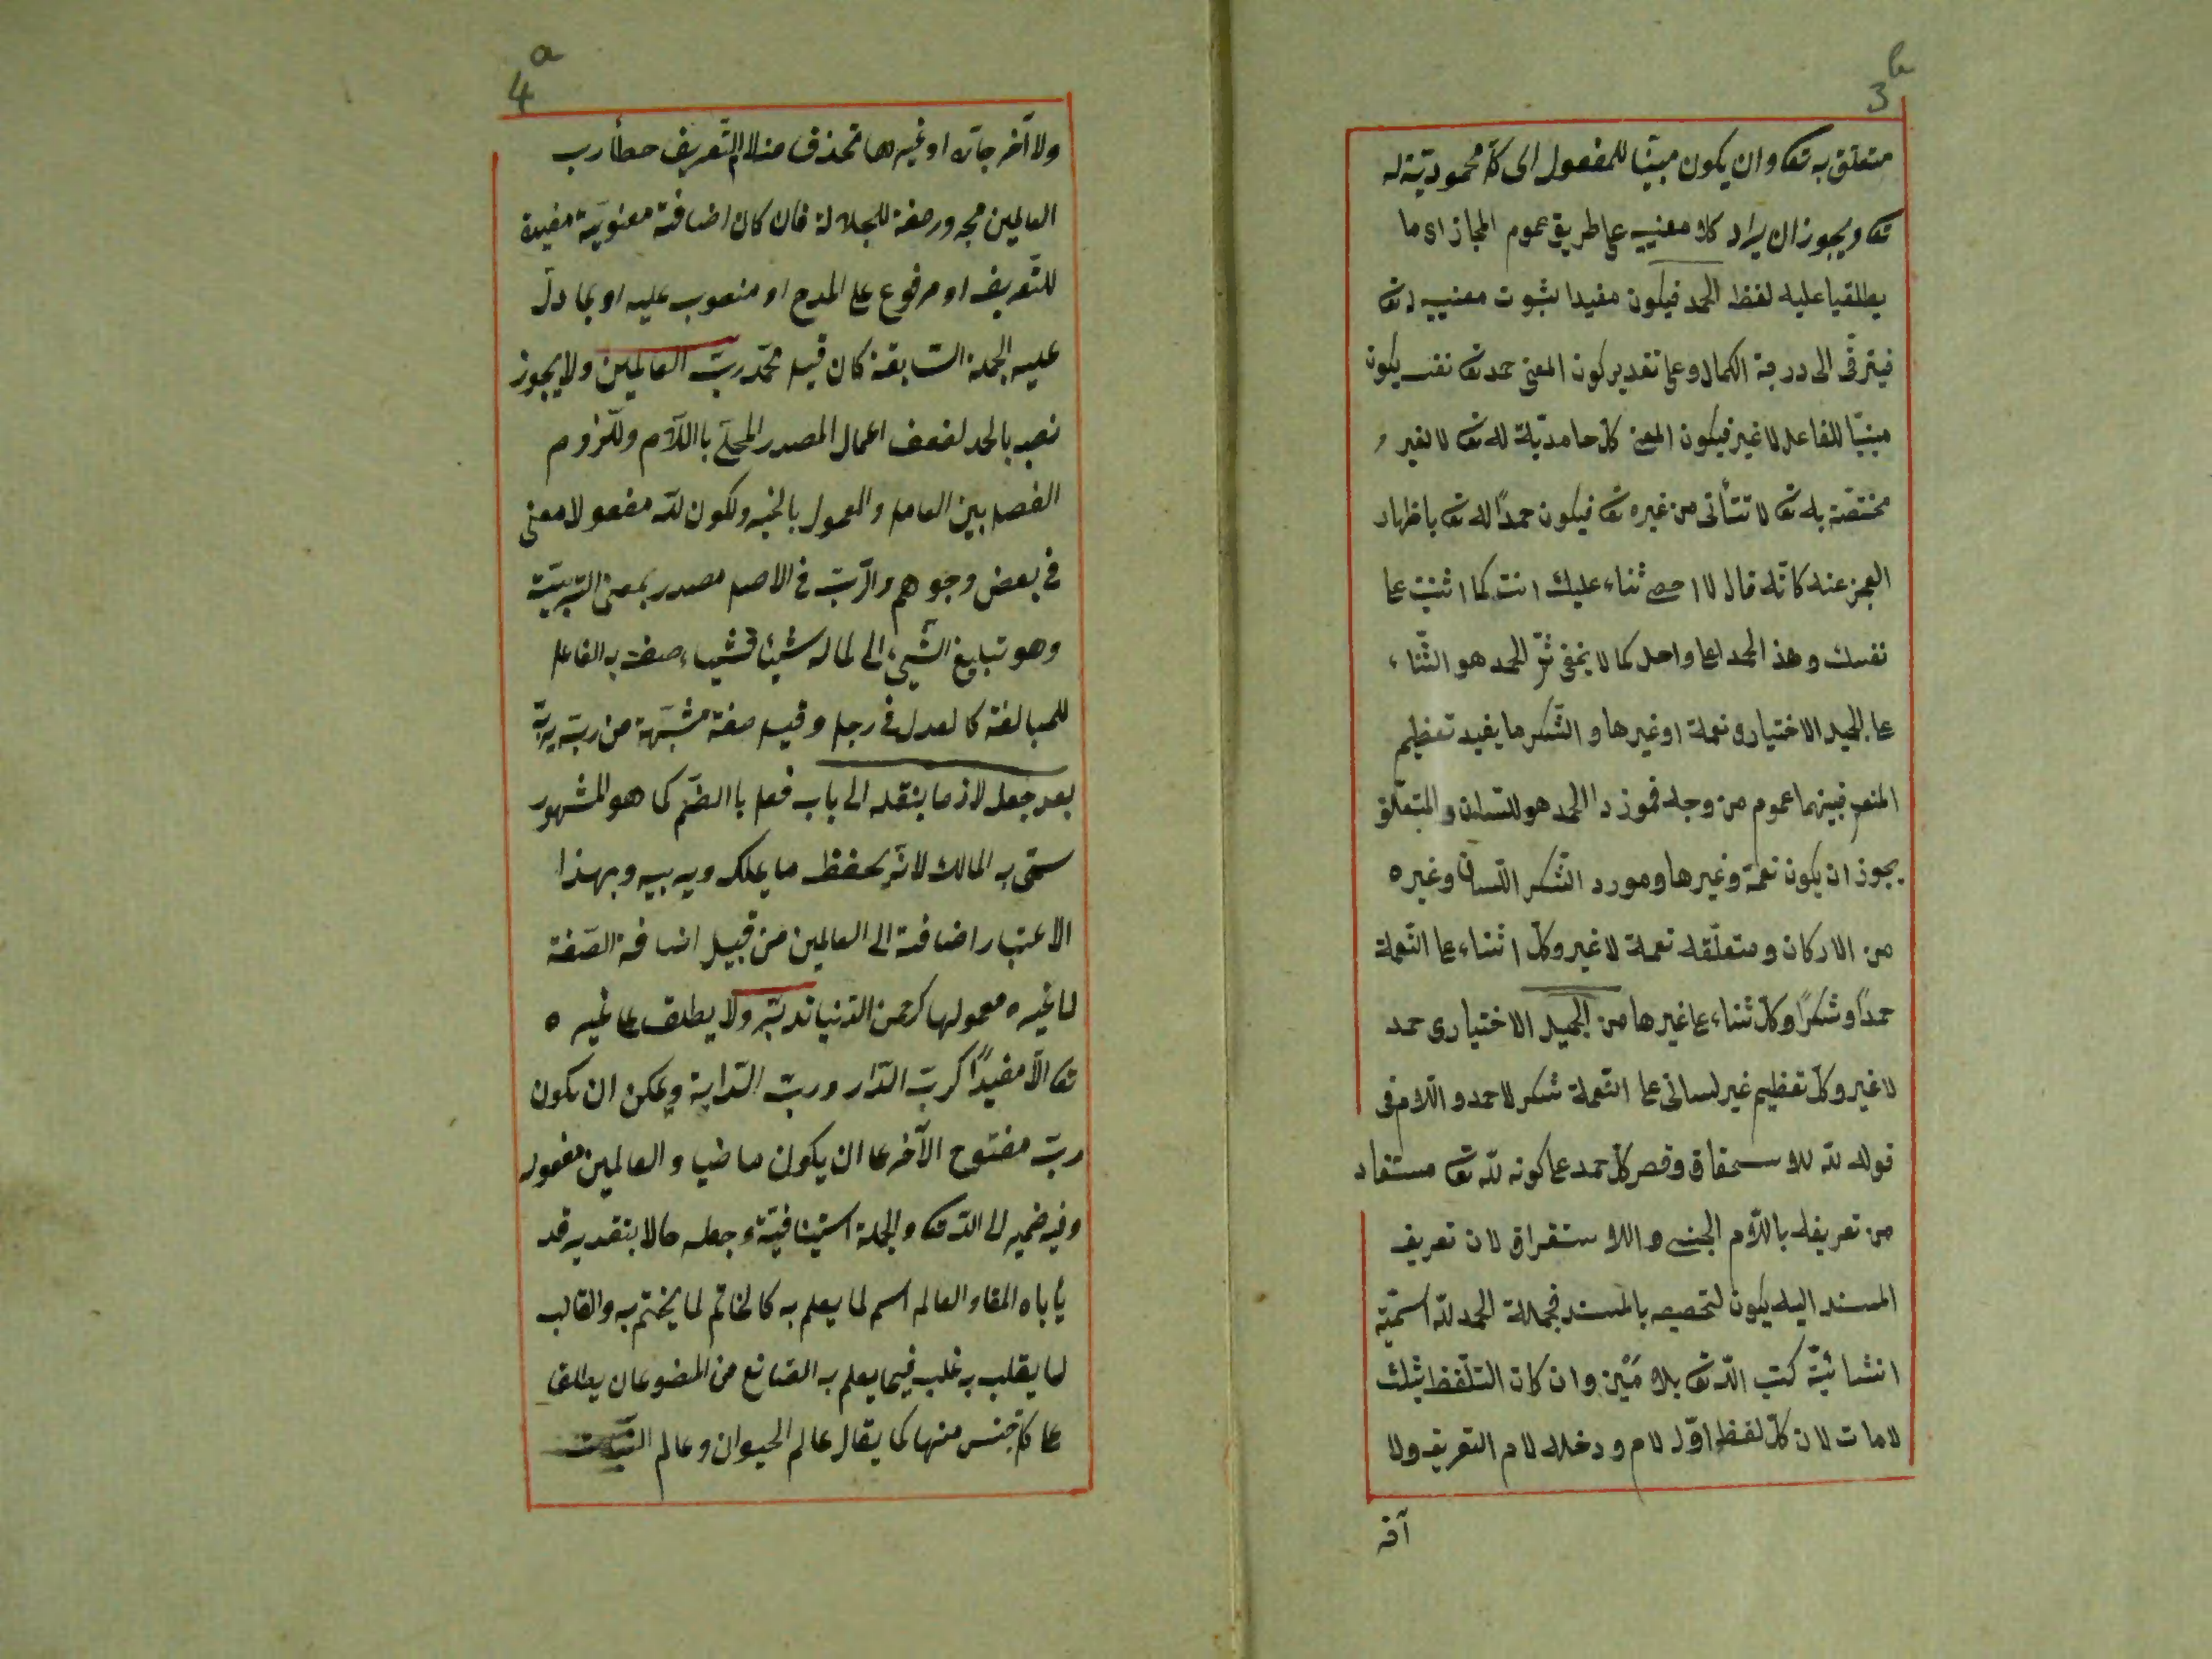 3b
متعلق به تعا وان يكون مبنيّا للمفعول اى كلّ محموديّة له
تعا ويجوز ان يراد كلا معنييه على طريق عموم المجاز اى ما
يطلق عليه لفظ الحمد فيكون مفيدا بثبوت معنييه له تعا
فيترقّى الى درجة الكمال وعلى تقدير كون المعنى حمد تعا نفسه يكون
مبنيّا للفاعل لا غير فيكون المعنى كلّ حامديّة له تعا لا لغيره
مختصّة به تعا لا تتأتى من غيره تعا فيكون حمدًا له تعا باظهار
العجز عنه كانّه قال لا احصى ثناء عليك انت كما اثنيت على
نفسك وهذا الحمد اعلى واجل كما لا يخفى ثمّ الحمد هو الثّناء
على الجميل الاختيارى نعمة او غيرها والشّكر ما يفيد تعظيم
المنعم فبينهما عموم من وجه فمورد الحمد هو اللّسان والمتعلّق
يجوز ان يكون نعمة وغيرها ومورد الشّكر اللّسان وغيره
من الاركان ومتعلّقه نعمة لا غير وكلّ اثناء على النّعمة
حمدًا وشكرًا وكلّ ثناء على غيرها من الجميل الاختيارى حمد
لا غير وكلّ تعظيم غير لسانى على النّعمة شكر لا حمد واللّام فى
قوله لله للاستحقاق وقصر كلّ حمد على كونه لله تعا مستفاد
من تعريفه باللّام الجنسى والاستغراق لان تعريف
المسند اليه يكون لتخصيصه بالمسند فجملة الحمد لله اسميّة
انشائيّة كتب الله تعا بلامين وان كان التلفّظ بثلث
لامات لان كلّ لفظ اوّله لام ودخله لام التعريف ولا
آخر
4a
ولا آخر جارّه او غيرها تحذف منه لام التّعريف خطأ رب
العالمين مجرور صفة للجلالة فان كان اضافته معنويّة مفيدة
للتّعريف او مرفوع على المدح او منصوب عليه او بما دلّ
عليه الجملة السّابقة كان قيل محمّد ربّ العالمين ولا يجوز
نصبه بالحمد لضعف اعمال المصدر المحلّى باللّام وللّزوم
الفصل بين العامل والمعمول بالخبر ولكون لله مفعولا معنى
فى بعض وجوهم والرّبّ فى الاصل مصدر بمعنى التّربيّة
وهو تبليغ الشّىء الى كماله شيئا فشيئا، وصف به الفاعل
للمبالغة كالعدل فى رجل وقيل صفة مشبّهة من ربّه يربّه
بعد جعل لازما بنقله الى باب فعل باالضّم كما هو المشهور
سمّى به المالك لانّه يحفظ ما يملكه ويربيه وبهذا
الاعتبار اضافته الى العالمين من قبيل اضافة الصّفة
لا غير معمولها كرحمن الدّنيا تدبّر ولا يطلق على غيره
تعا الّا مقيدًا كربّ الدّار وربّ الدّابة ويمكن ان يكون
ربّ مفتوح الآخر على ان يكون ماضيا والعالمين مفعوله
وفيه ضمير الى الله تعا والجملة استينافيّة وجعله حالا بتقدير قد
يأباه المقا والعالم اسم لما يعلم به كالخاتم لما يختم به والقالب
لما يقلب به غلب فيما يعلم به الصّانع من المصنوعات يطلق
على كلّ جنس منها كما يقال عالم الحيوان وعالم النّبات